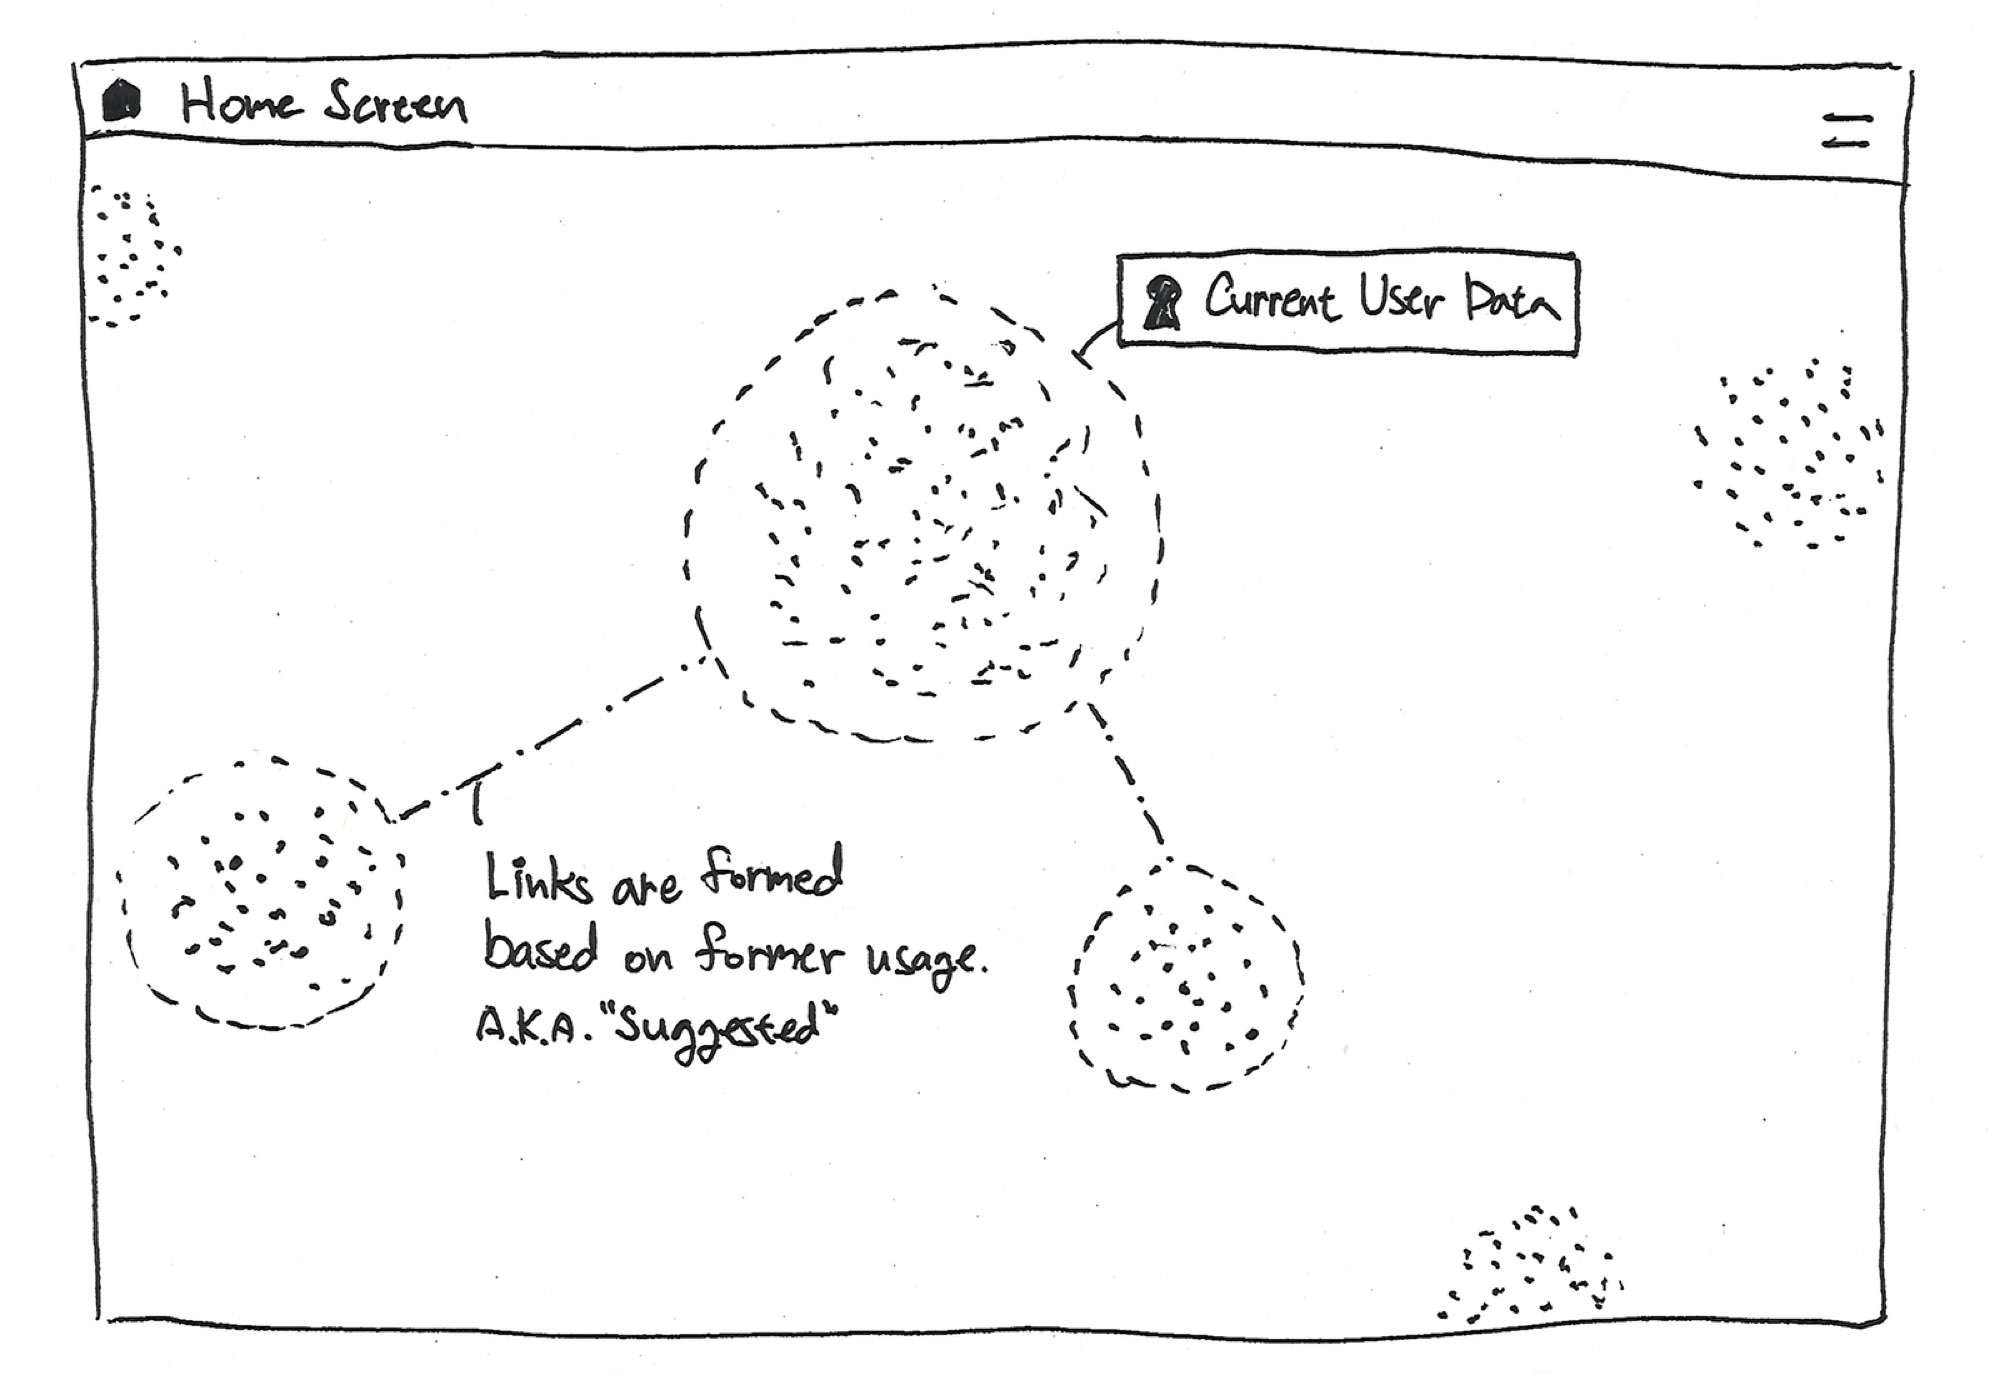 Home Screen
Current User Data
Links are formed
based on former usage.
A.K.A. "Suggested"